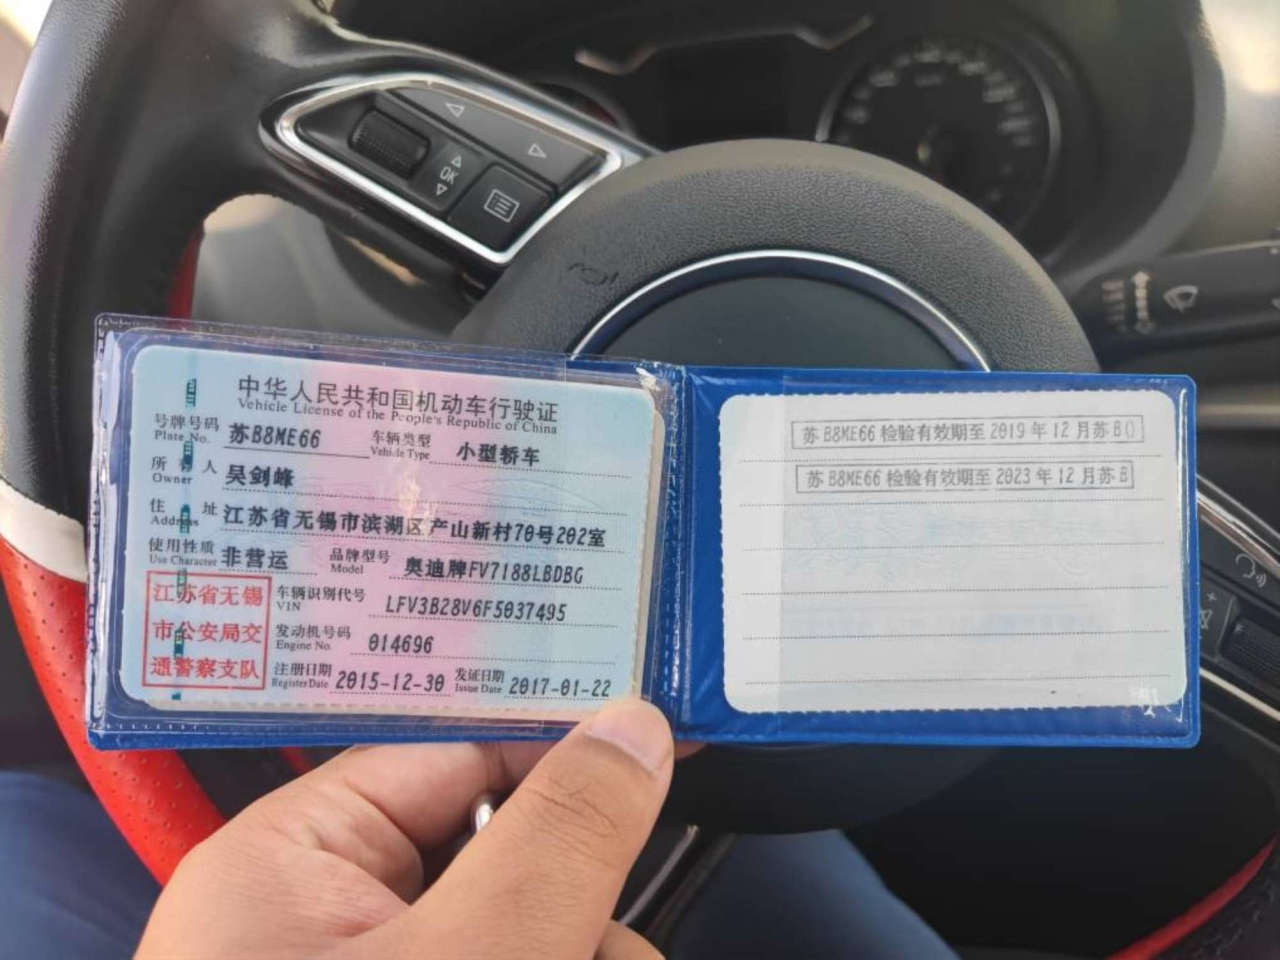 中华人民共和国机动车行驶证
Vehicle License of the People's Republic of China
号牌号码 苏B8ME66 车辆类型 小型轿车
Plate No. Vehicle Type
所有人 吴剑峰
Owner
住址 江苏省无锡市滨湖区产山新村70号202室
Address
使用性质 非营运 品牌型号 奥迪牌FV7188LBDBG
Use Character Model
江苏省无锡
市公安局交
通警察支队
车辆识别代号 LFV3B28V6F5037495
VIN
发动机号码 014696
Engine No.
注册日期 2015-12-30 发证日期 2017-01-22
Register Date Issue Date
苏B8ME66检验有效期至2019年12月苏B()
苏B8ME66检验有效期至2023年12月苏B
OK